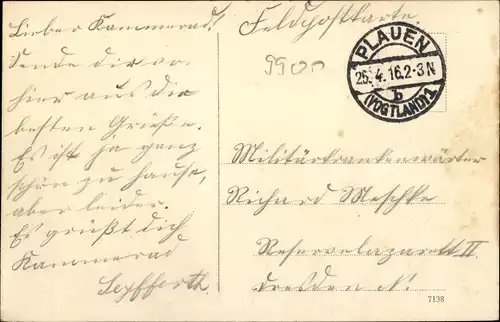 Lieber Kammerad!
Sende dir von
hier aus die
besten Grüße.
Es ist ja ganz
schön zu hause,
aber leider.
Es grüßt dich
Kammerad
Seyfferth.
Feldpostkarte.
9900
PLAUEN
26.4.16.2-3N
b
(VOGTLAND)1
Militärkrankenwärter
Richard Meschke
Reservelazarett II
Dresden N.
7138